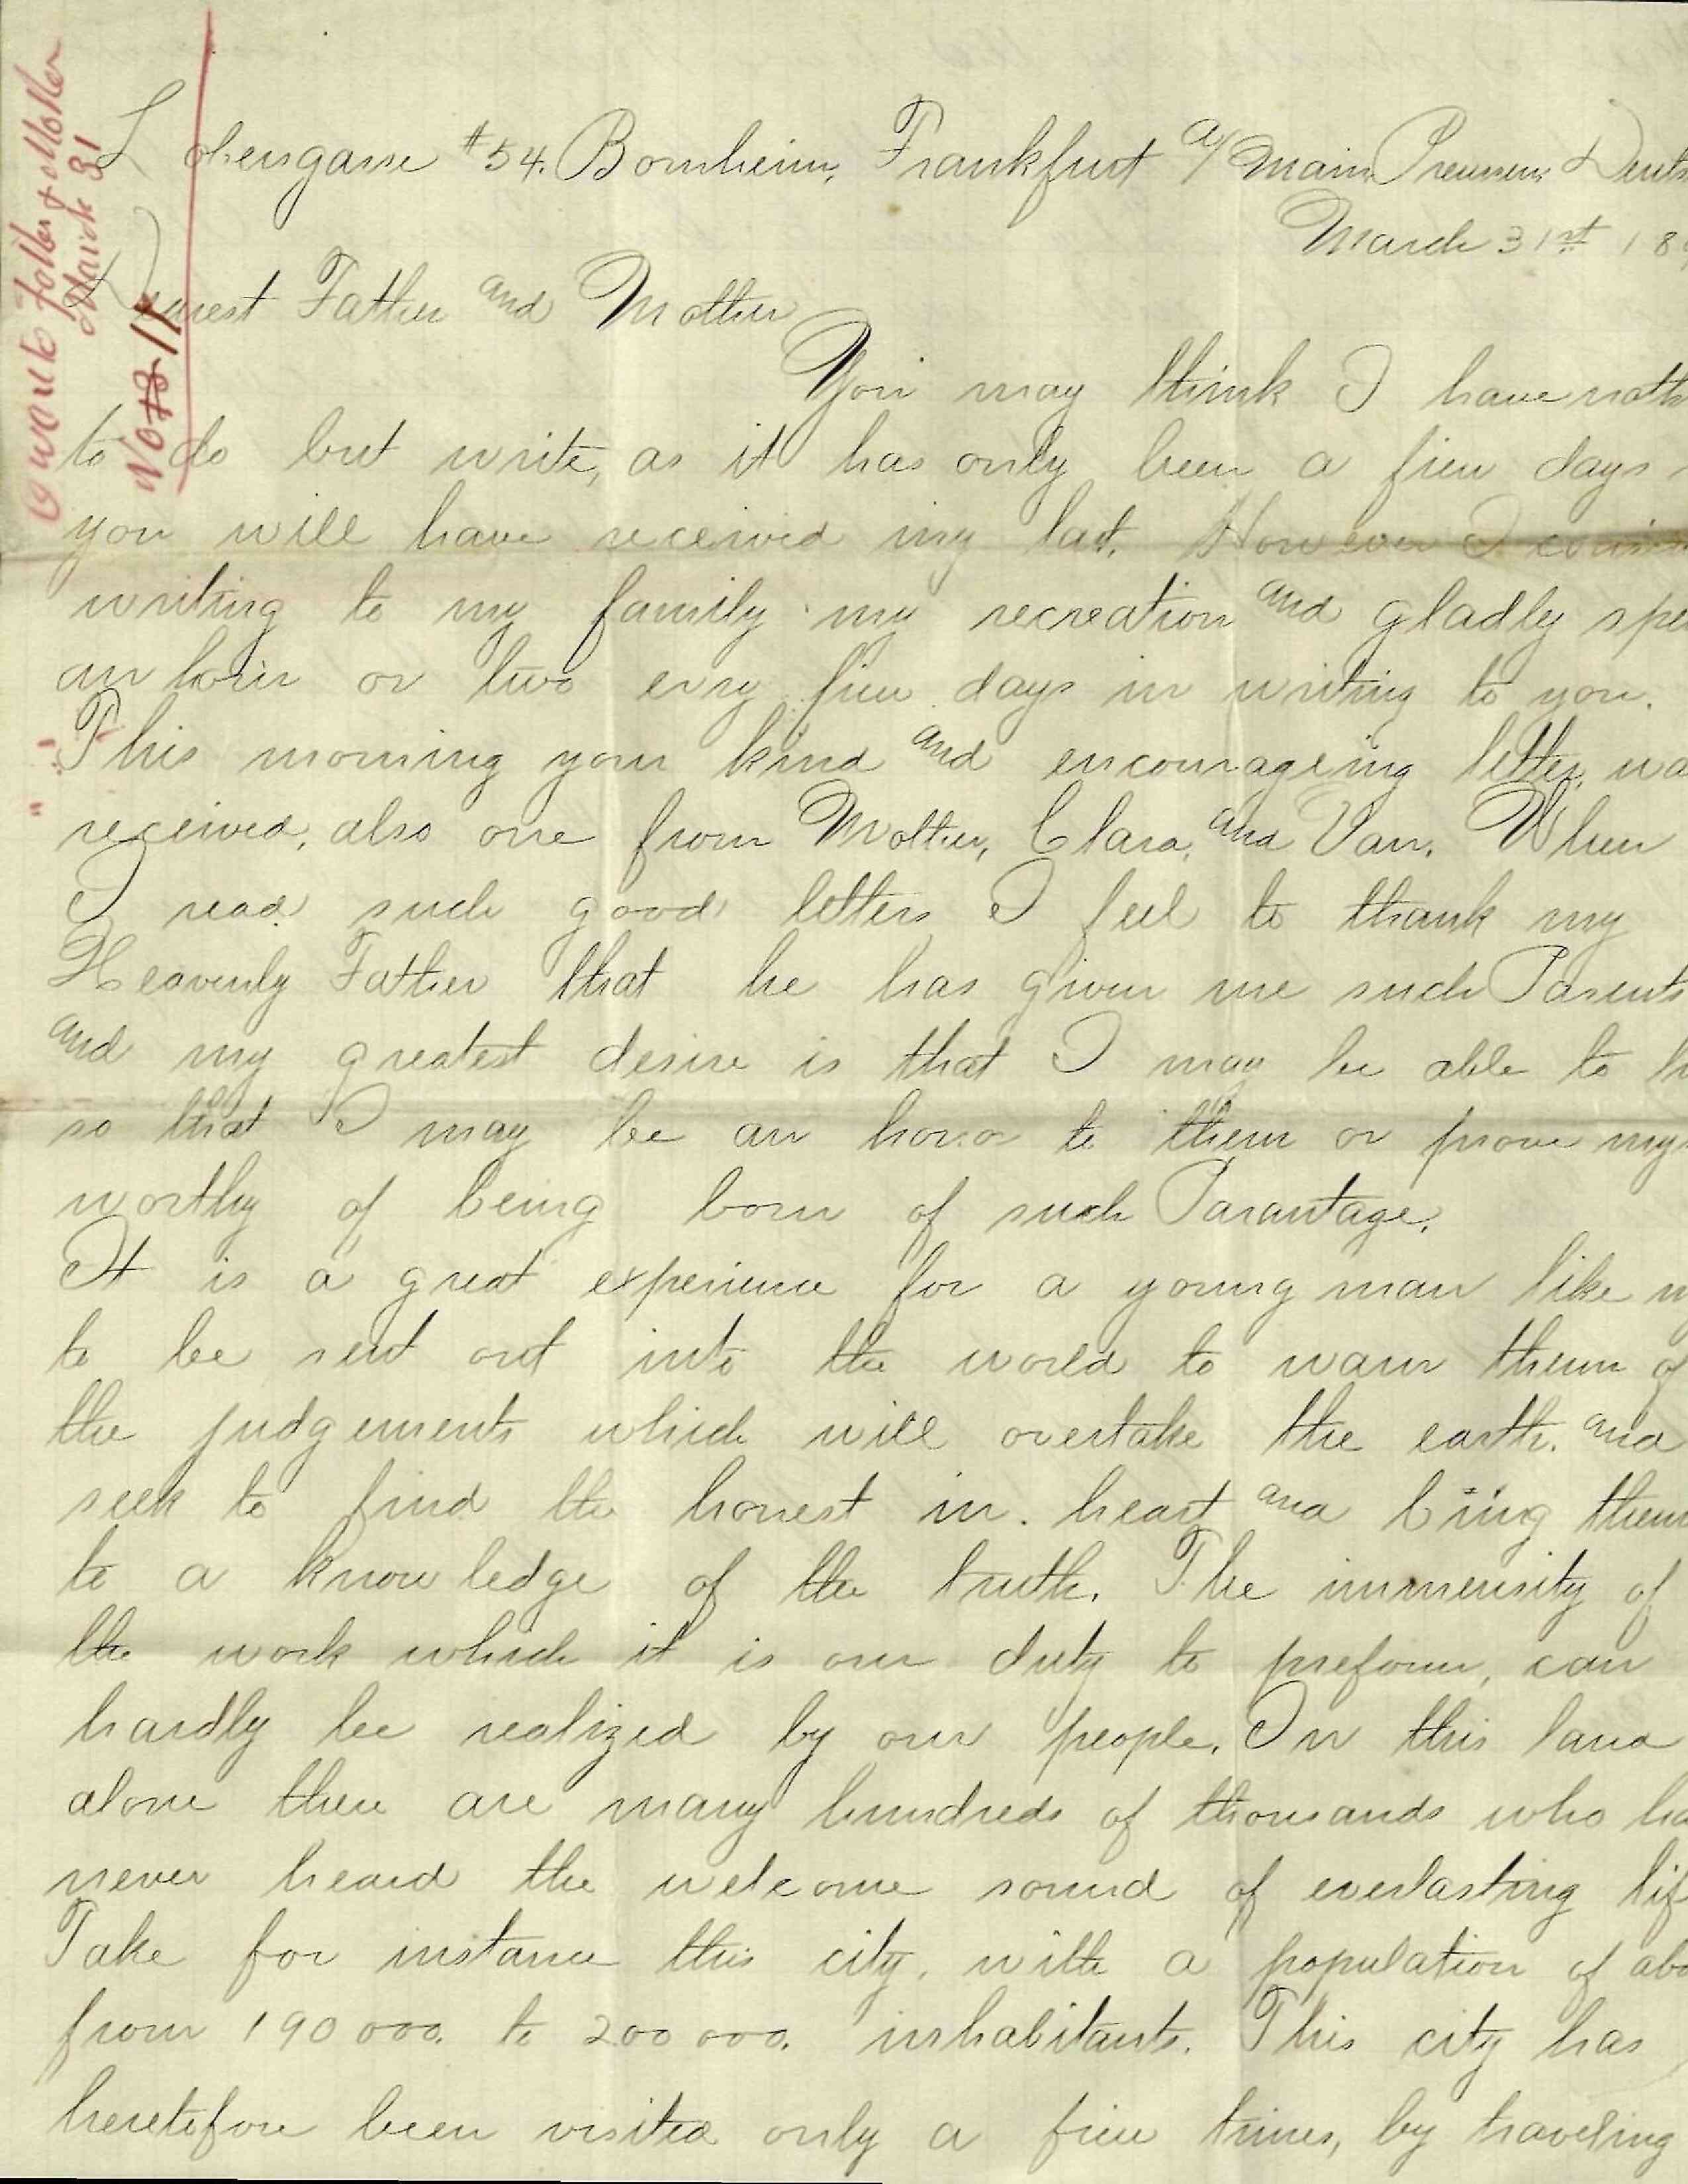 G W O W to Father & Mother
March 31
No 78 11
Lohensgasse #54. Bornheim, Frankfurt a/ Main, Preussen, Deuts
March 31st 18
Dearest Father and Mother
You may think I have noth
to do but write, as it has only been a fiew days
you will have received my last. However I consi
writing to my family my recreation and gladly spe
an hour or two evry fiew days in writing to you.
This morning your kind and encourageing letter wa
received, also one from Mother, Clara, and Van. When
I read such good letters I feel to thank my
Heavenly Father that he has given me such Parents
and my greatest desire is that I may be able to li
so that I may be an honor to them or prove mys
worthy of being born of such Parantage.
It is a great experience for a young man like m
to be sent out into the world to warn them of
the judgements which will overtake the earth, and
seek to find the honest in heart and bring them
to a knowledge of the truth. The immensity of
the work which it is our duty to preform, can
hardly be realized by our people. In this land
alone there are many hundreds of thousands who ha
never heard the welcome sound of everlasting lif
Take for instance this city, with a population of abo
from 190 000. to 200 000. inhabitants. This city has
heretofore been visited only a fiew times, by traveling